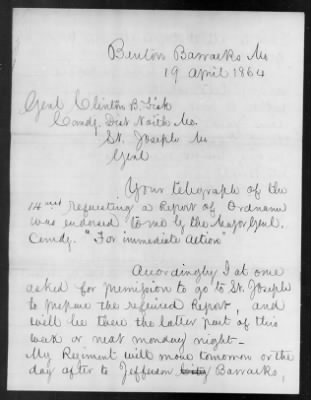 Benton Barracks Mo
19 April 1864
Genl Clinton B. Fisk
Comdg. Dist North Mo.
St. Joseph Mo
Genl
Your telegraph of the
14 inst requesting a Report of Ordnance
was endorsed to me by the Major Genl.
Comdg. "For immediate Action"
Accordingly I at once
asked for permission to go to St. Joseph
to prepare the required Report, and
will be there the latter part of this
week or next monday night—
My Regiment will move tomorrow or the
day after to Jefferson City Barracks,